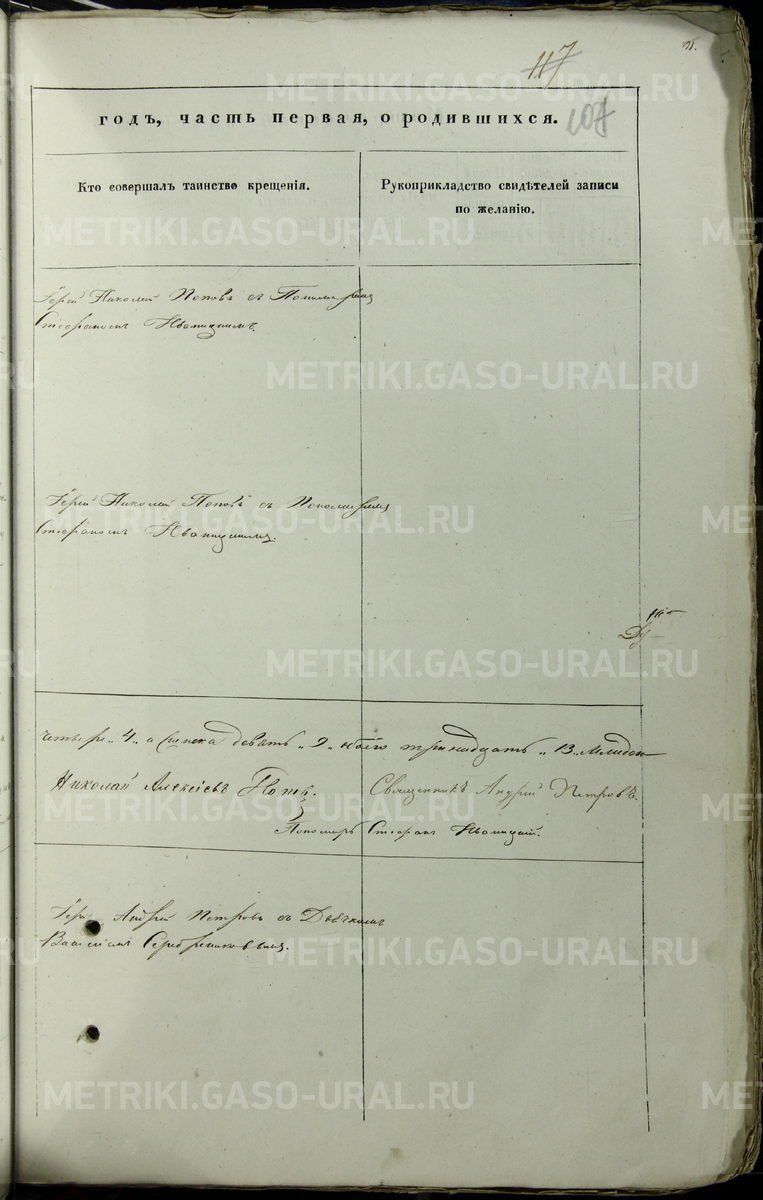 117
107
годъ, часть первая, о родившихся.
Кто совершалъ таинство крещенія.
Рукоприкладство свидѣтелей записи
по желанію.
Іерей Николай Поповъ съ Пономаремъ
Стефаномъ Иваницкимъ.
Іерей Николай Поповъ съ Пономаремъ
Стефаномъ Иваницкимъ.
четыре „4„ а женска девять „9„ обоего тринадцать „13„
Николай Алексіевъ Поповъ. Священникъ Андрей Петровъ.
Пономарь Стефанъ Иваницкій.
Іерей Андрей Петровъ съ Дьячкомъ
Василіемъ Серебрениковымъ.
METRIKI.GASO-URAL.RU